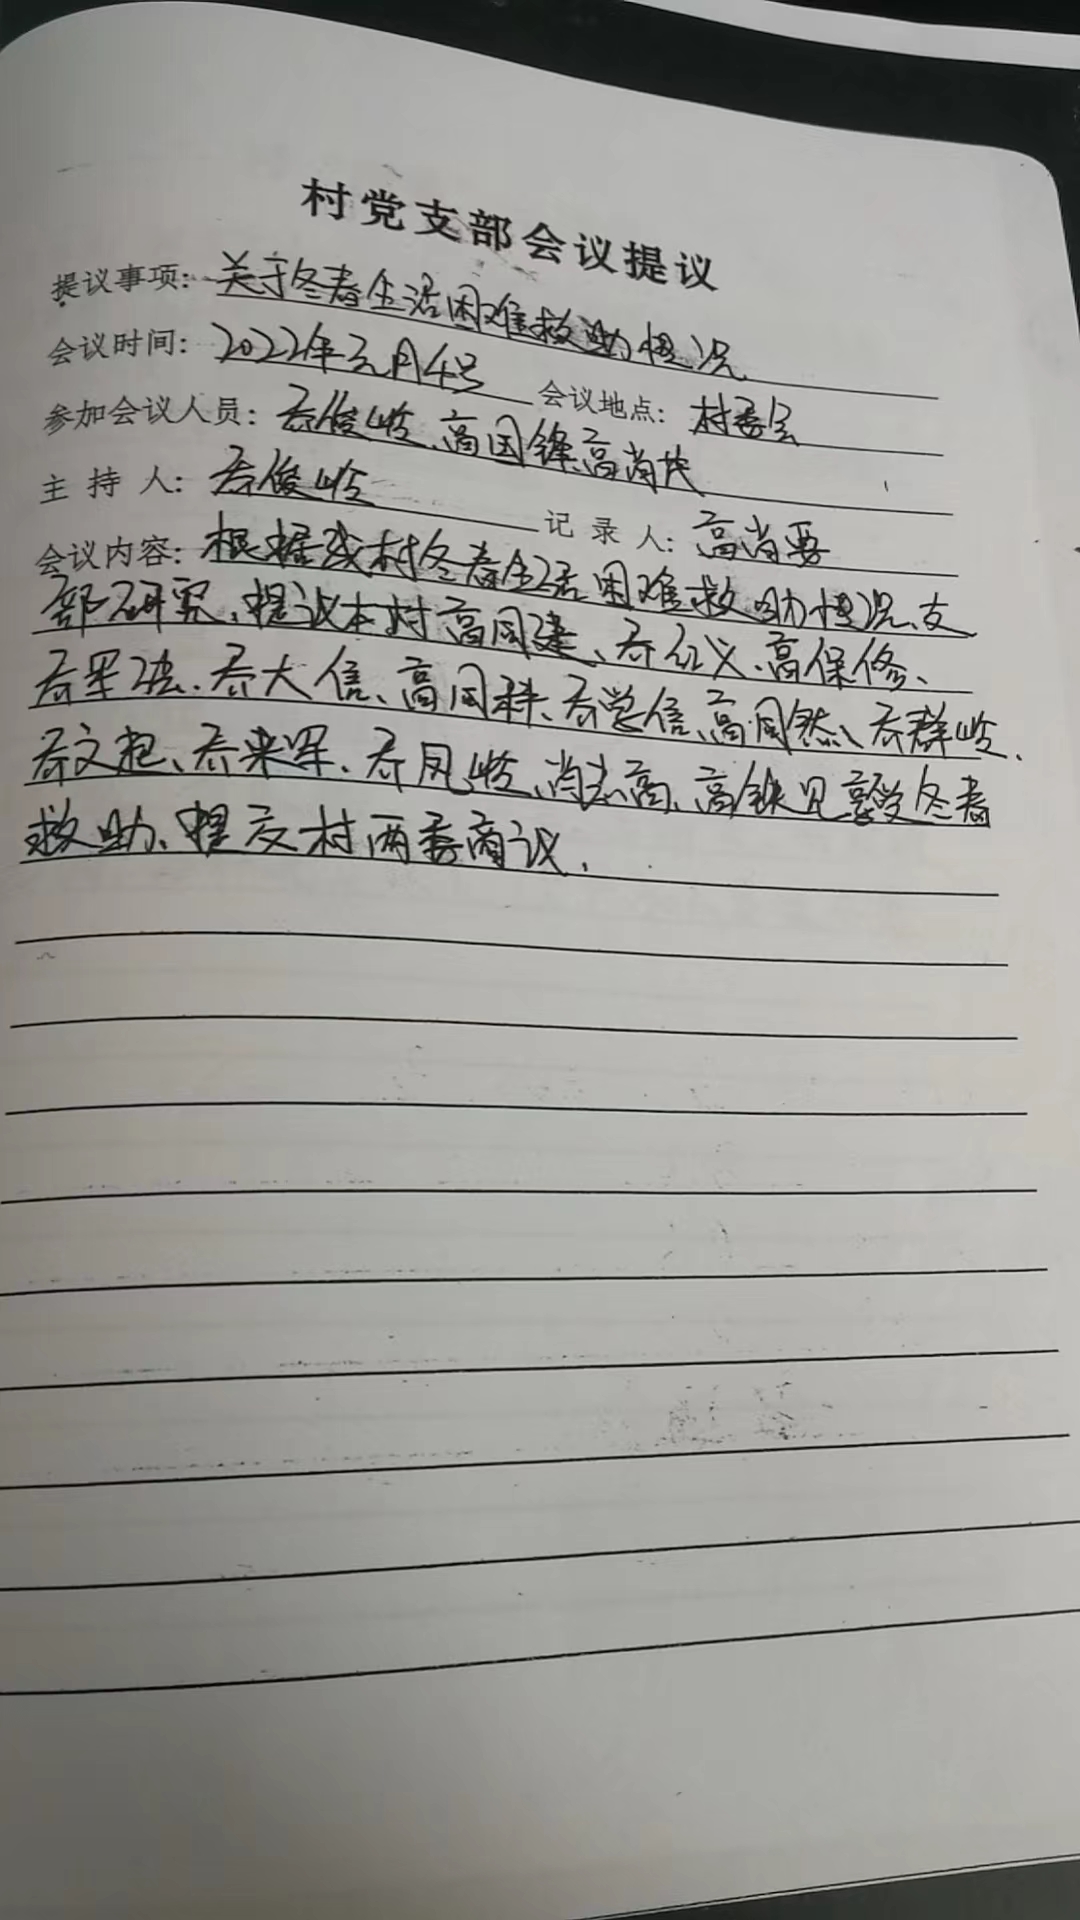 村党支部会议提议
提议事项：关于冬春生活困难救助情况
会议时间：2022年元月4号 会议地点：村委会
参加会议人员：乔俊岭、高国锋、高尚
主持人：乔俊岭 记录人：高尚要
会议内容：根据我村冬春生活困难救助情况、支
部研究、提议本村高同建、乔红义、高保修、
乔军法、乔大信、高同科、乔学信、高同然、乔群岭、
乔文起、乔来军、乔凤岭、尚志高、高铁见享受冬春
救助、提交村两委商议.